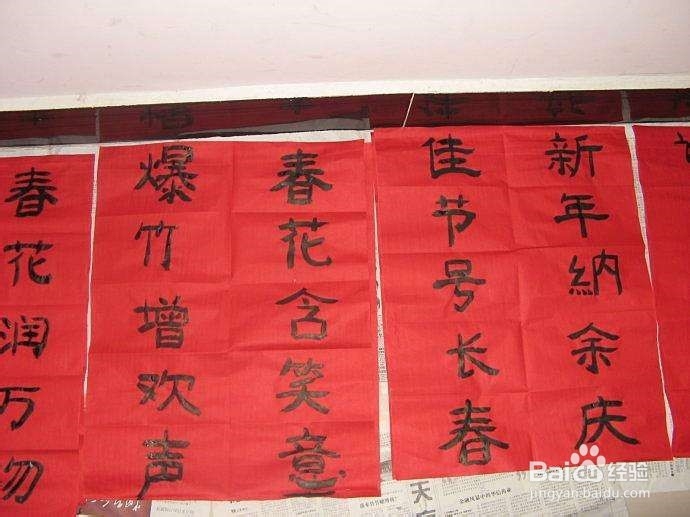 新年納余庆
佳节号长春
春花含笑意
爆竹增欢声
春花润万物
Baidu经验
jingyan.baidu.com